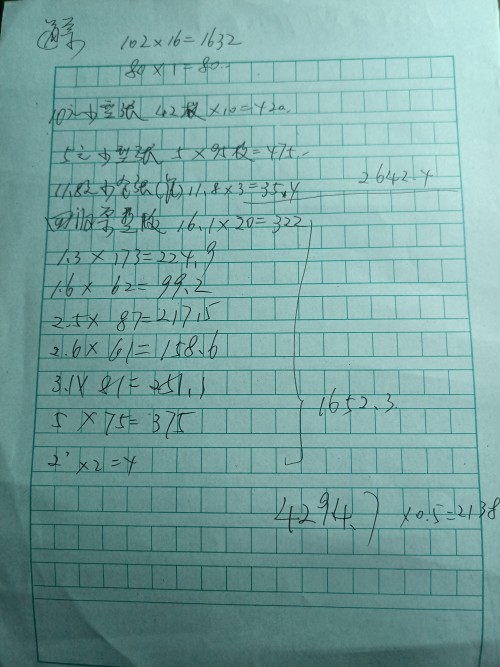 102×16=1632
80×1=80
10元小型张 42枚×10=420
5元小型张 5×95枚=475
11.8×3=35.4
2642.4
16.1×20=322
1.3×173=224.9
1.6×62=99.2
2.5×87=217.5
2.6×61=158.6
3.1×81=251.1
1652.3
5×75=375
2×2=4
4294.7 ×0.5=2138